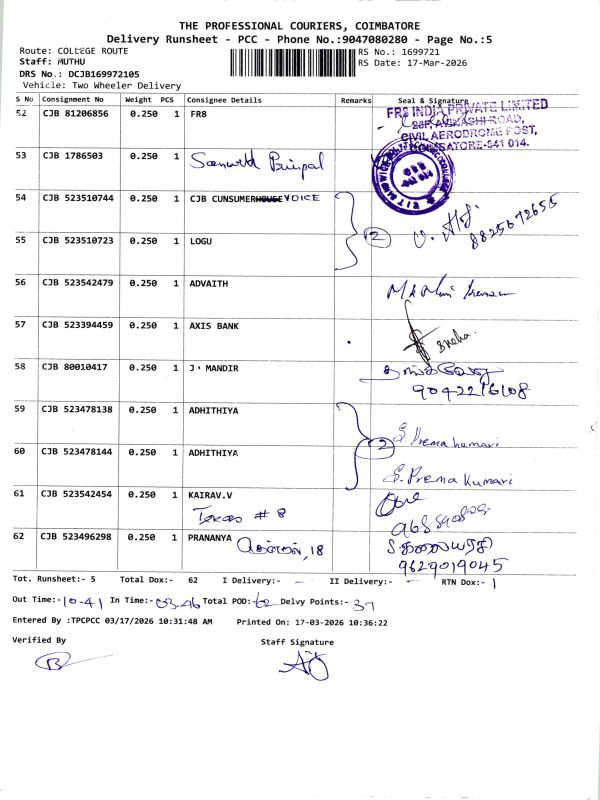 THE PROFESSIONAL COURIERS, COIMBATORE
Delivery Runsheet - PCC - Phone No.:9047080280 - Page No.:5
Route: COLLEGE ROUTE
Staff: MUTHU
DRS No.: DCJB169972105
Vehicle: Two Wheeler Delivery
RS No.: 1699721
RS Date: 17-Mar-2026
S No Consignment No Weight PCS Consignee Details Remarks Seal & Signature
52 CJB 81206856 0.250 1 FR8
FR8 INDIA PRIVATE LIMITED
AVINASHI ROAD,
CIVIL AERODROME POST,
COIMBATORE-641 014.
53 CJB 1786503 0.250 1
54 CJB 523510744 0.250 1 CJB CUNSUMERHOUSE VOICE
2 8825672655
55 CJB 523510723 0.250 1 LOGU
56 CJB 523542479 0.250 1 ADVAITH
57 CJB 523394459 0.250 1 AXIS BANK
Sneha.
58 CJB 80010417 0.250 1 J MANDIR
9042216108
59 CJB 523478138 0.250 1 ADHITHIYA
2 S. Prema kumari
60 CJB 523478144 0.250 1 ADHITHIYA
S. Prema Kumari
61 CJB 523542454 0.250 1 KAIRAV.V
# 8
62 CJB 523496298 0.250 1 PRANANYA
18
9629019045
Tot. Runsheet:- 5 Total Dox:- 62 I Delivery:- II Delivery:- RTN Dox:- 1
Out Time:- 10.41 In Time:- 03.46 Total POD:- 62 Delvy Points:- 37
Entered By :TPCPCC 03/17/2026 10:31:48 AM Printed On: 17-03-2026 10:36:22
Verified By Staff Signature